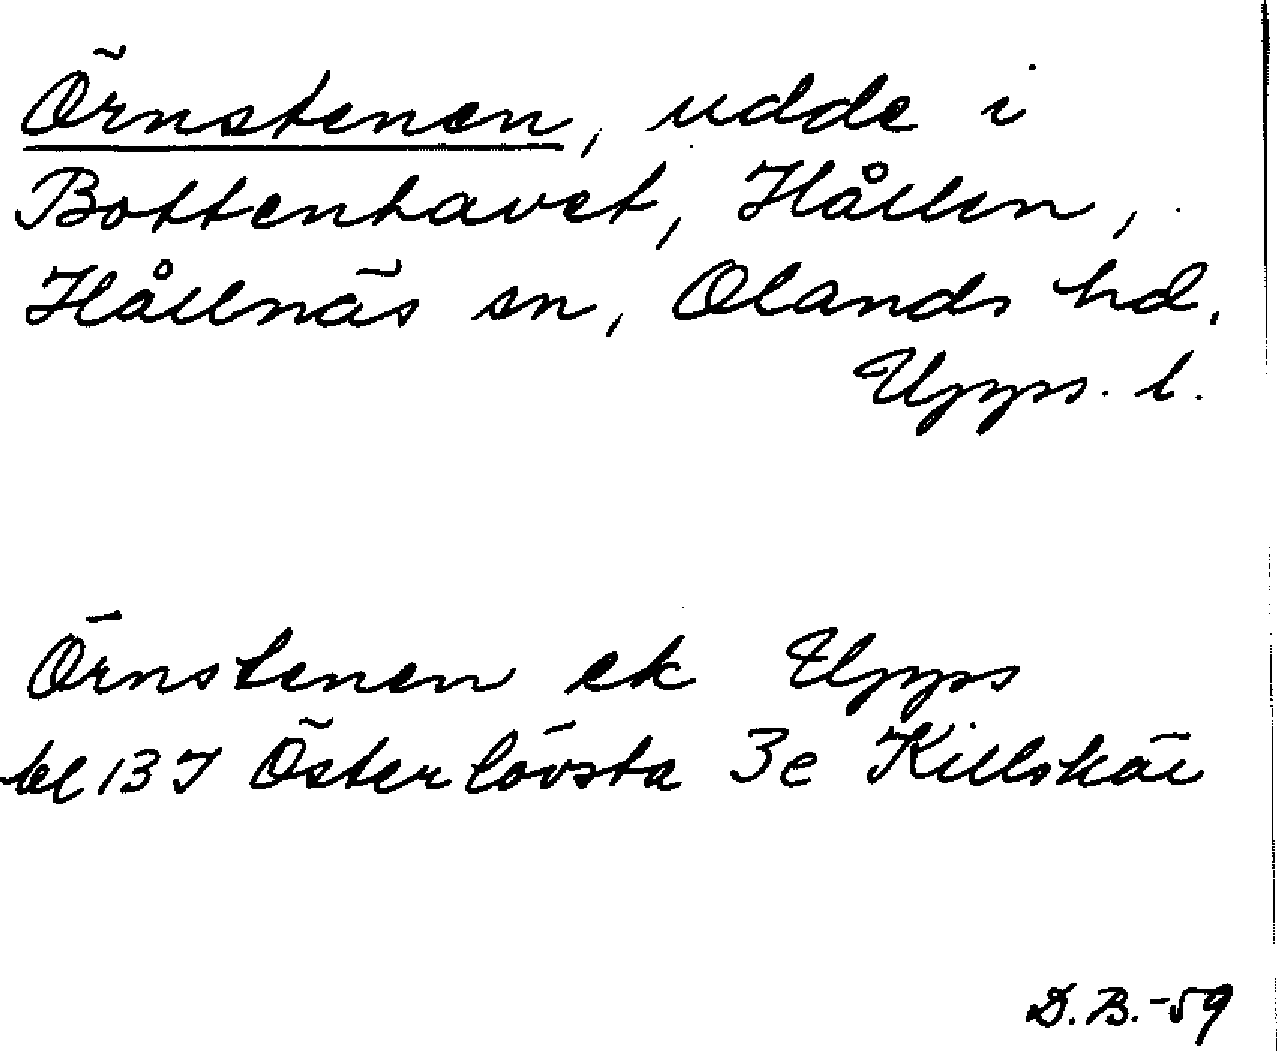 Örnstenen, udde i
Bottenhavet, Hållen,
Hållnäs sn, Olands hd.
Upps. l.
Örnstenen ek Upps
bl 13 I Österlövsta 3e Killskär
D.B.-59